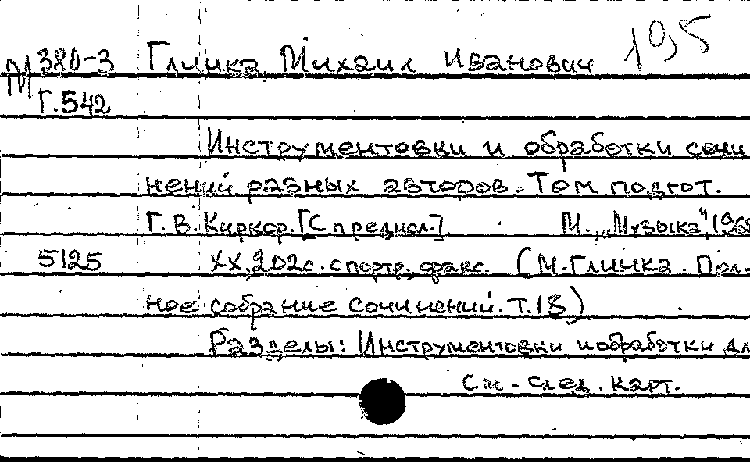 М 380-3 Глинка Михаил Иванович 195
Г.542
Инструментовки и обработки сочи
нений разных авторов. Том подгот.
Г. В. Киркор. [С предисл.] М., „Музыка", 196
5125 XX, 202с. с портр., факс. (М. Глинка. Пол.
ное собрание сочинений. Т. 18)
Разделы: Инструментовки и обработки дл
См. след. карт.